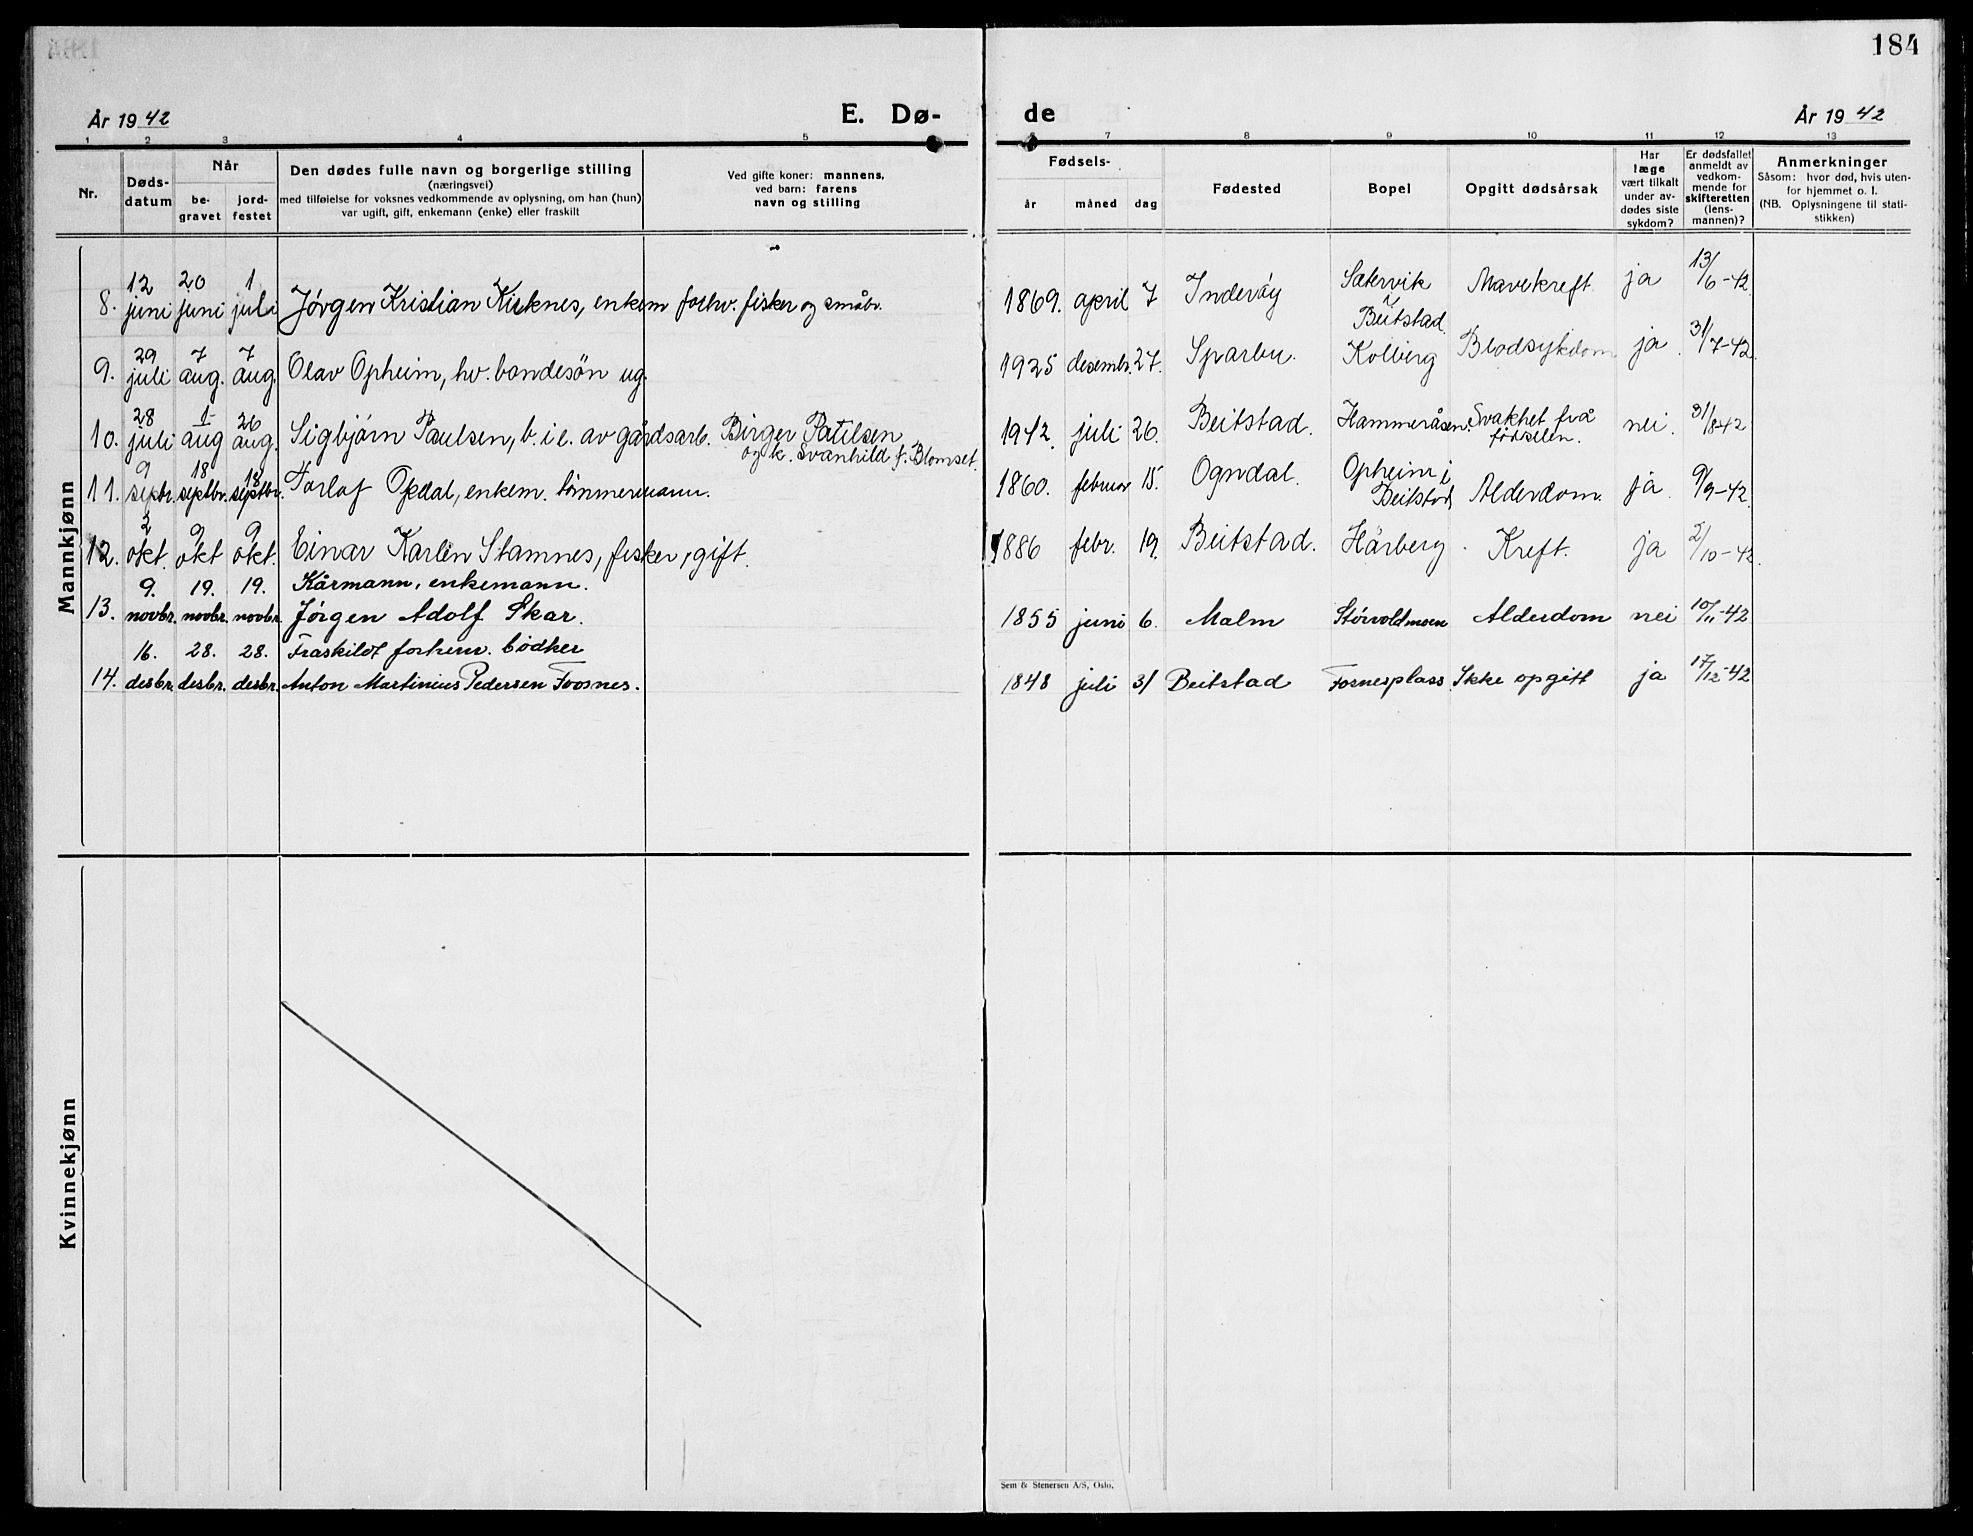 184
År 1942
E. Dø-
de
År 1942
1 2 3 4 5 7 8 9 10 11 12 13
Nr.
Døds-
datum
Når
be-
gravet
jord-
festet
Den dødes fulle navn og borgerlige stilling
(næringsvei)
med tilføielse for voksnes vedkommende av oplysning, om han (hun)
var ugift, gift, enkemann (enke) eller fraskilt
Ved gifte koner: mannens,
ved barn: farens
navn og stilling
Fødsels-
år måned dag
Fødested
Bopel
Opgitt dødsårsak
Har
læge
vært tilkalt
under av-
dødes siste
sykdom?
Er dødsfallet
anmeldt av
vedkom-
mende for
skifteretten
(lens-
mannen)?
Anmerkninger
Såsom: hvor død, hvis uten-
for hjemmet o. l.
(NB. Oplysningene til stati-
stikken)
Mannkjønn
12 20 1 Sætervik 13/6-42
8. juni juni juli Jørgen Kristian Kirknes, enkem forhv. fisker og småbr. 1869. april 7 Inderøy i Mavekreft ja
Beitstad
29 7 7
9. juli aug. aug. Olav Opheim, hv. bondesøn ug. 1925 desembr. 27. Sparbu. Kolberg Blodsykdom ja. 31/7-42
28 1 26
10. juli aug aug. Sigbjørn Paulsen, b. i e. av gårdsarb. Birger Paulsen 1942. juli 26. Beitstad. Hammeråsen. Svakhet frå nei. 31/8-42
og k. Svanhild f. Blomset. fødselen.
9 18 18 Opheim i
11. septbr. septbr. septbr. Torlof Opdal, enkem. tømmermann. 1860. februar 15. Ogndal. Beitstad Alderdom. ja. 9/9-42
2 9 9
12. okt. okt okt. Einar Karlin Stamnes, fisker, gift. 1886 febr. 19. Beitstad. Hårberg. Kreft. ja 2/10-42
9. 19. 19. Kårmann, enkemann.
13. novbr. novbr. novbr. Jørgen Adolf Skar. 1855 juni 6. Malm Størvoldmoen Alderdom nei 10/11-42
16. 28. 28. Fraskilt forhenv. bødker
14. desbr. desbr. desbr. Anton Martinius Pedersen Foosnes. 1848 juli 31 Beitstad Fosnesplass Ikke opgitt ja 17/12-42
Kvinnekjønn
Sem & Stenersen A/S, Oslo.